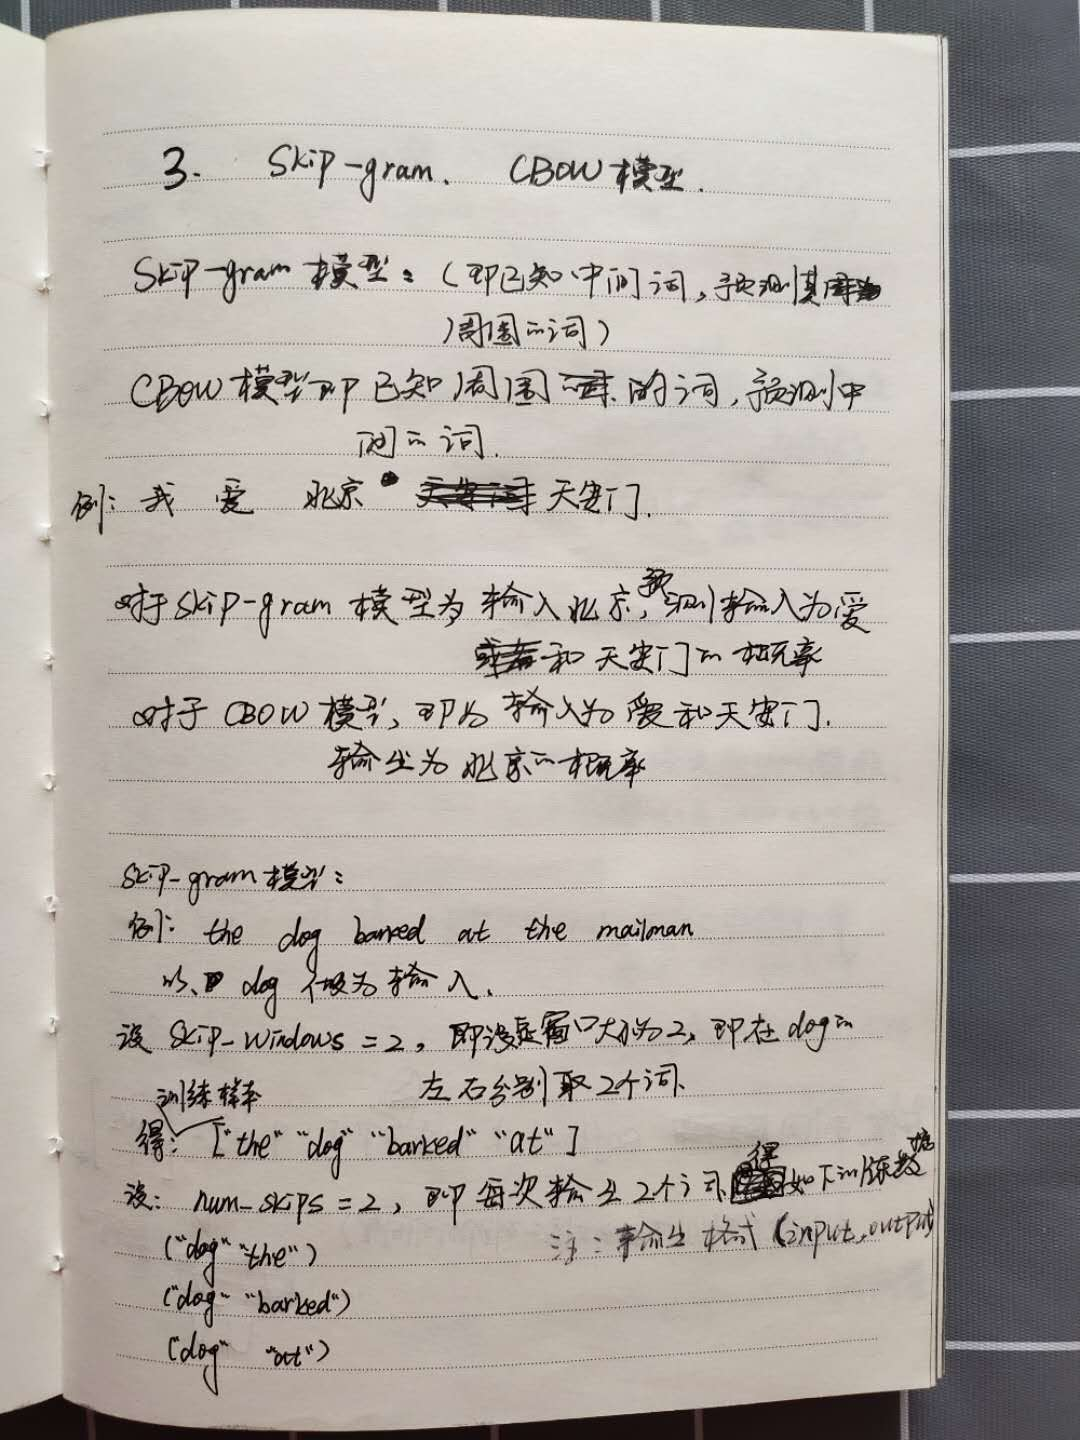 3. Skip-gram、CBOW 模型.
Skip-gram 模型:(即已知中间词,预测其
周围的词)
CBOW 模型即已知周围的词,预测中
间的词.
例: 我 爱 北京 天安门.
对于 Skip-gram 模型为输入北京,预测输入为爱
和天安门的概率
对于 CBOW 模型,即为输入为爱和天安门.
输出为北京的概率
Skip-gram 模型:
例: the dog barked at the mailman
以 dog 做为输入.
设 Skip-windows = 2, 即设定窗口大小为2, 即在dog的
左右分别取2个词.
训练样本
得: ["the" "dog" "barked" "at"]
设: num-skips = 2, 即每次输出2个词得如下训练数据
("dog" "the") 注: 输出格式 (input, output)
("dog" "barked")
("dog" "at")